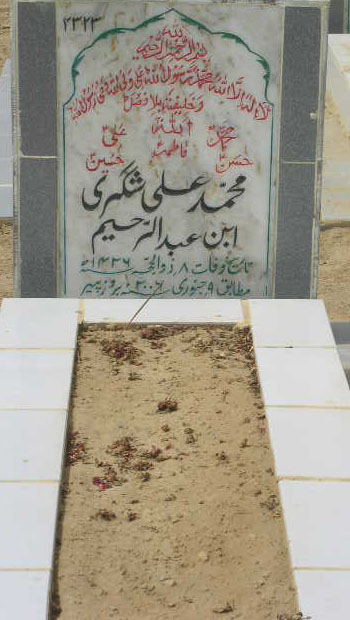 ۲۳۲۳
بسم اللہ الرحمن الرحیم
لا الہ الا اللہ محمد رسول اللہ علی ولی اللہ وصی رسول اللہ
وخلیفتہ بلا فصل
محمدؐ اللہ علیؑ
حسنؑ فاطمہؑ حسینؑ
محمد علی شگری
ابن عبدالرحیم
تاریخ وفات ۸ ذوالحجہ ۱۴۲۶ھ
مطابق ۹ جنوری ۲۰۰۶ بروز پیر